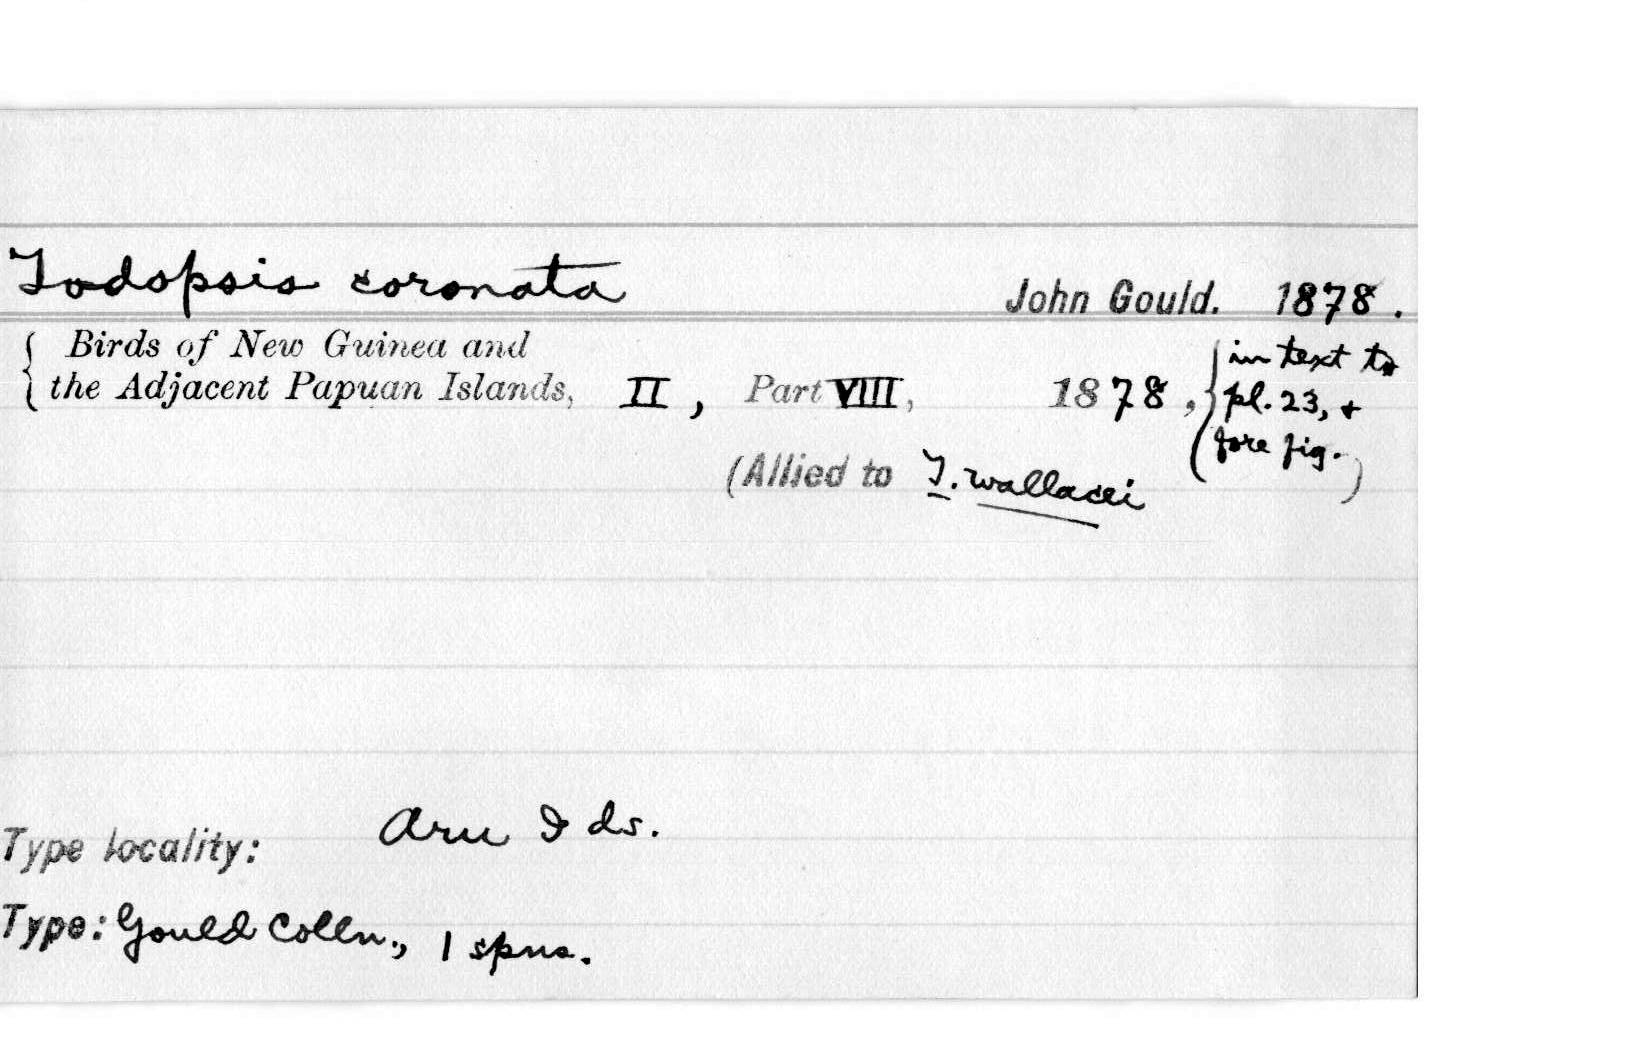 Todopsis coronata John Gould. 1878.
{ Birds of New Guinea and
the Adjacent Papuan Islands, II, Part VIII, 1878, } in text to
pl. 23, +
fore fig.
(Allied to T. wallacei )
Type locality: Aru Ids.
Type: Gould Colln., 1 spms.